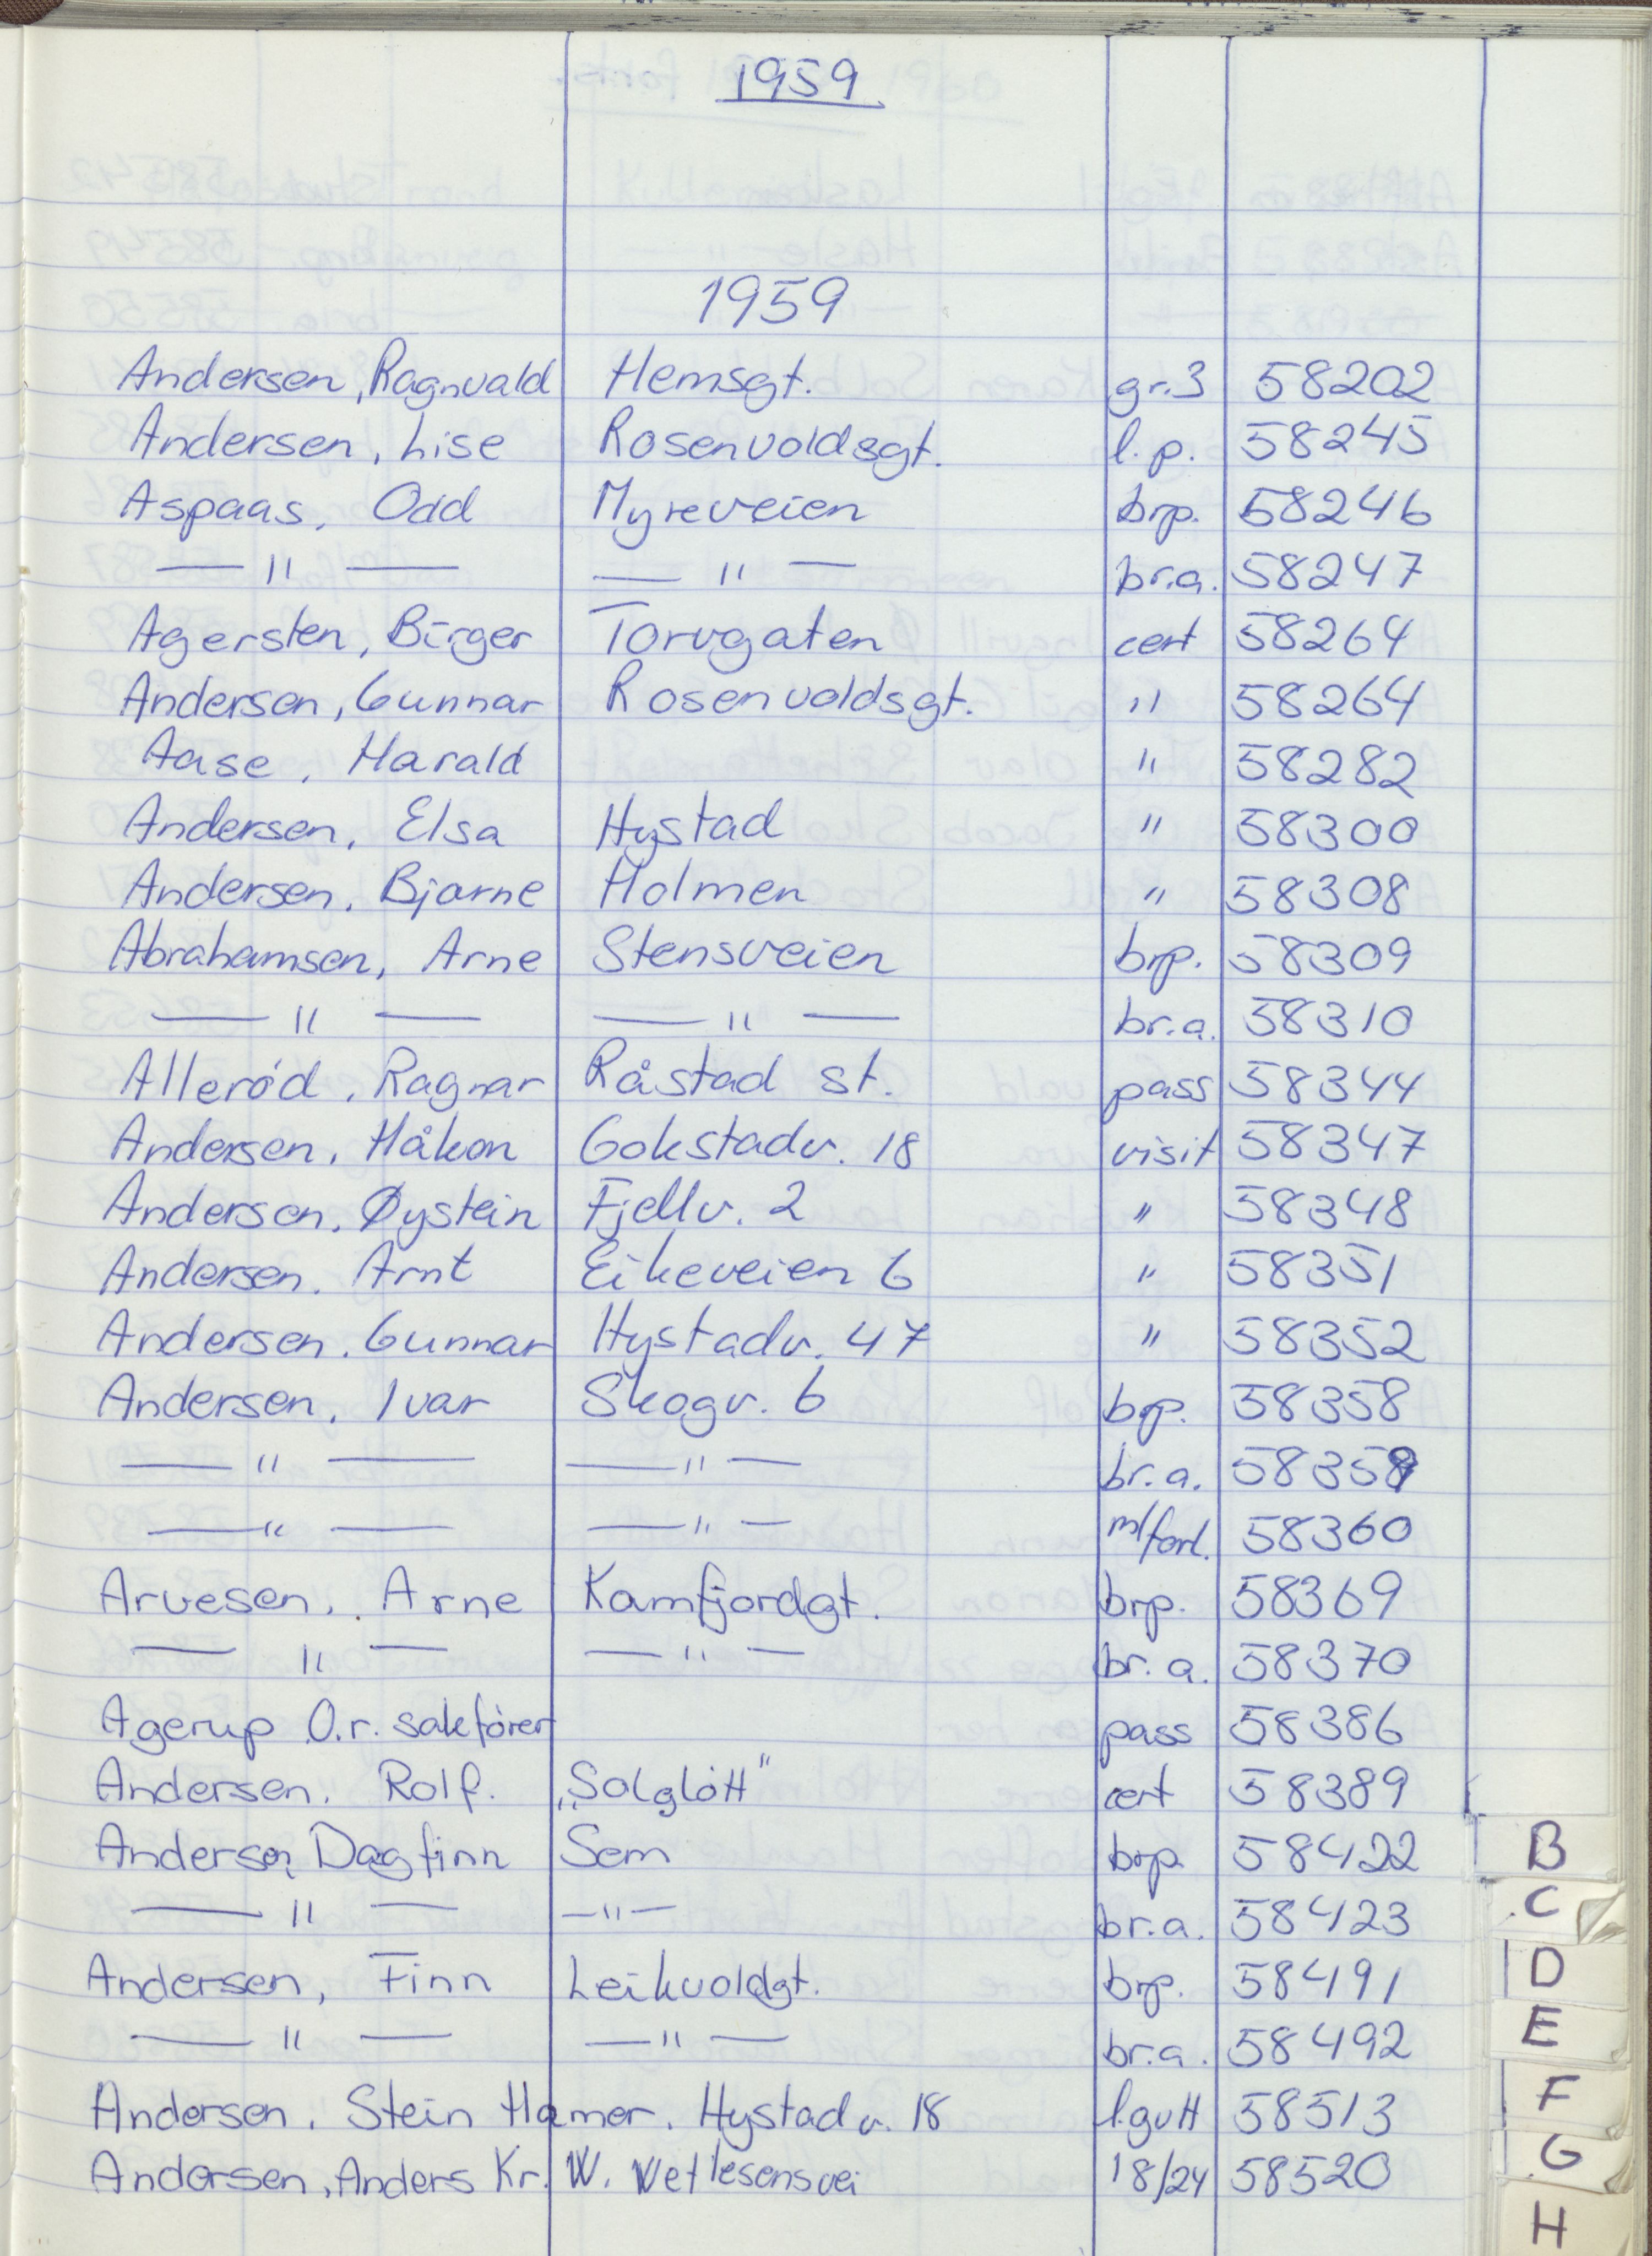 1959
1959
Andersen, Ragnvald Hemsgt. gr.3 58202
Andersen, Lise Rosenvoldsgt. l.p. 58245
Aspaas, Odd Myreveien brp. 58246
— " — — " — br.a. 58247
Agersten, Birger Torvgaten cert 58264
Andersen, Gunnar Rosenvoldsgt. " 58264
Aase, Harald " 58282
Andersen, Elsa Hystad " 58300
Andersen, Bjarne Holmen " 58308
Abrahamsen, Arne Stensveien brp. 58309
— " — — " — br.a. 58310
Alleröd, Ragnar Råstad st. pass 58344
Andersen, Håkon Gokstadv. 18 visit 58347
Andersen, Øystein Fjellv. 2 " 58348
Andersen, Arnt Eikeveien 6 " 58351
Andersen, Gunnar Hystadv. 47 " 58352
Andersen, Ivar Skogv. 6 brp. 58358
— " — — " — br.a. 58359
— " — — " — m/forl. 58360
Arvesen, Arne Kamfjordgt. brp. 58369
— " — — " — br.a. 58370
Agerup O.r. sakförer pass 58386
Andersen, Rolf. „Solglött" cert 58389
Andersen, Dagfinn Sem brp. 58422
— " — — " — br.a. 58423
Andersen, Finn Leikvoldgt. brp. 58491
— " — — " — br.a. 58492
Andersen, Stein Hamer. Hystadv. 18 l.gutt 58513
Andersen, Anders Kr. W. Wetlesensvei 18/24 58520
B
C
D
E
F
G
H